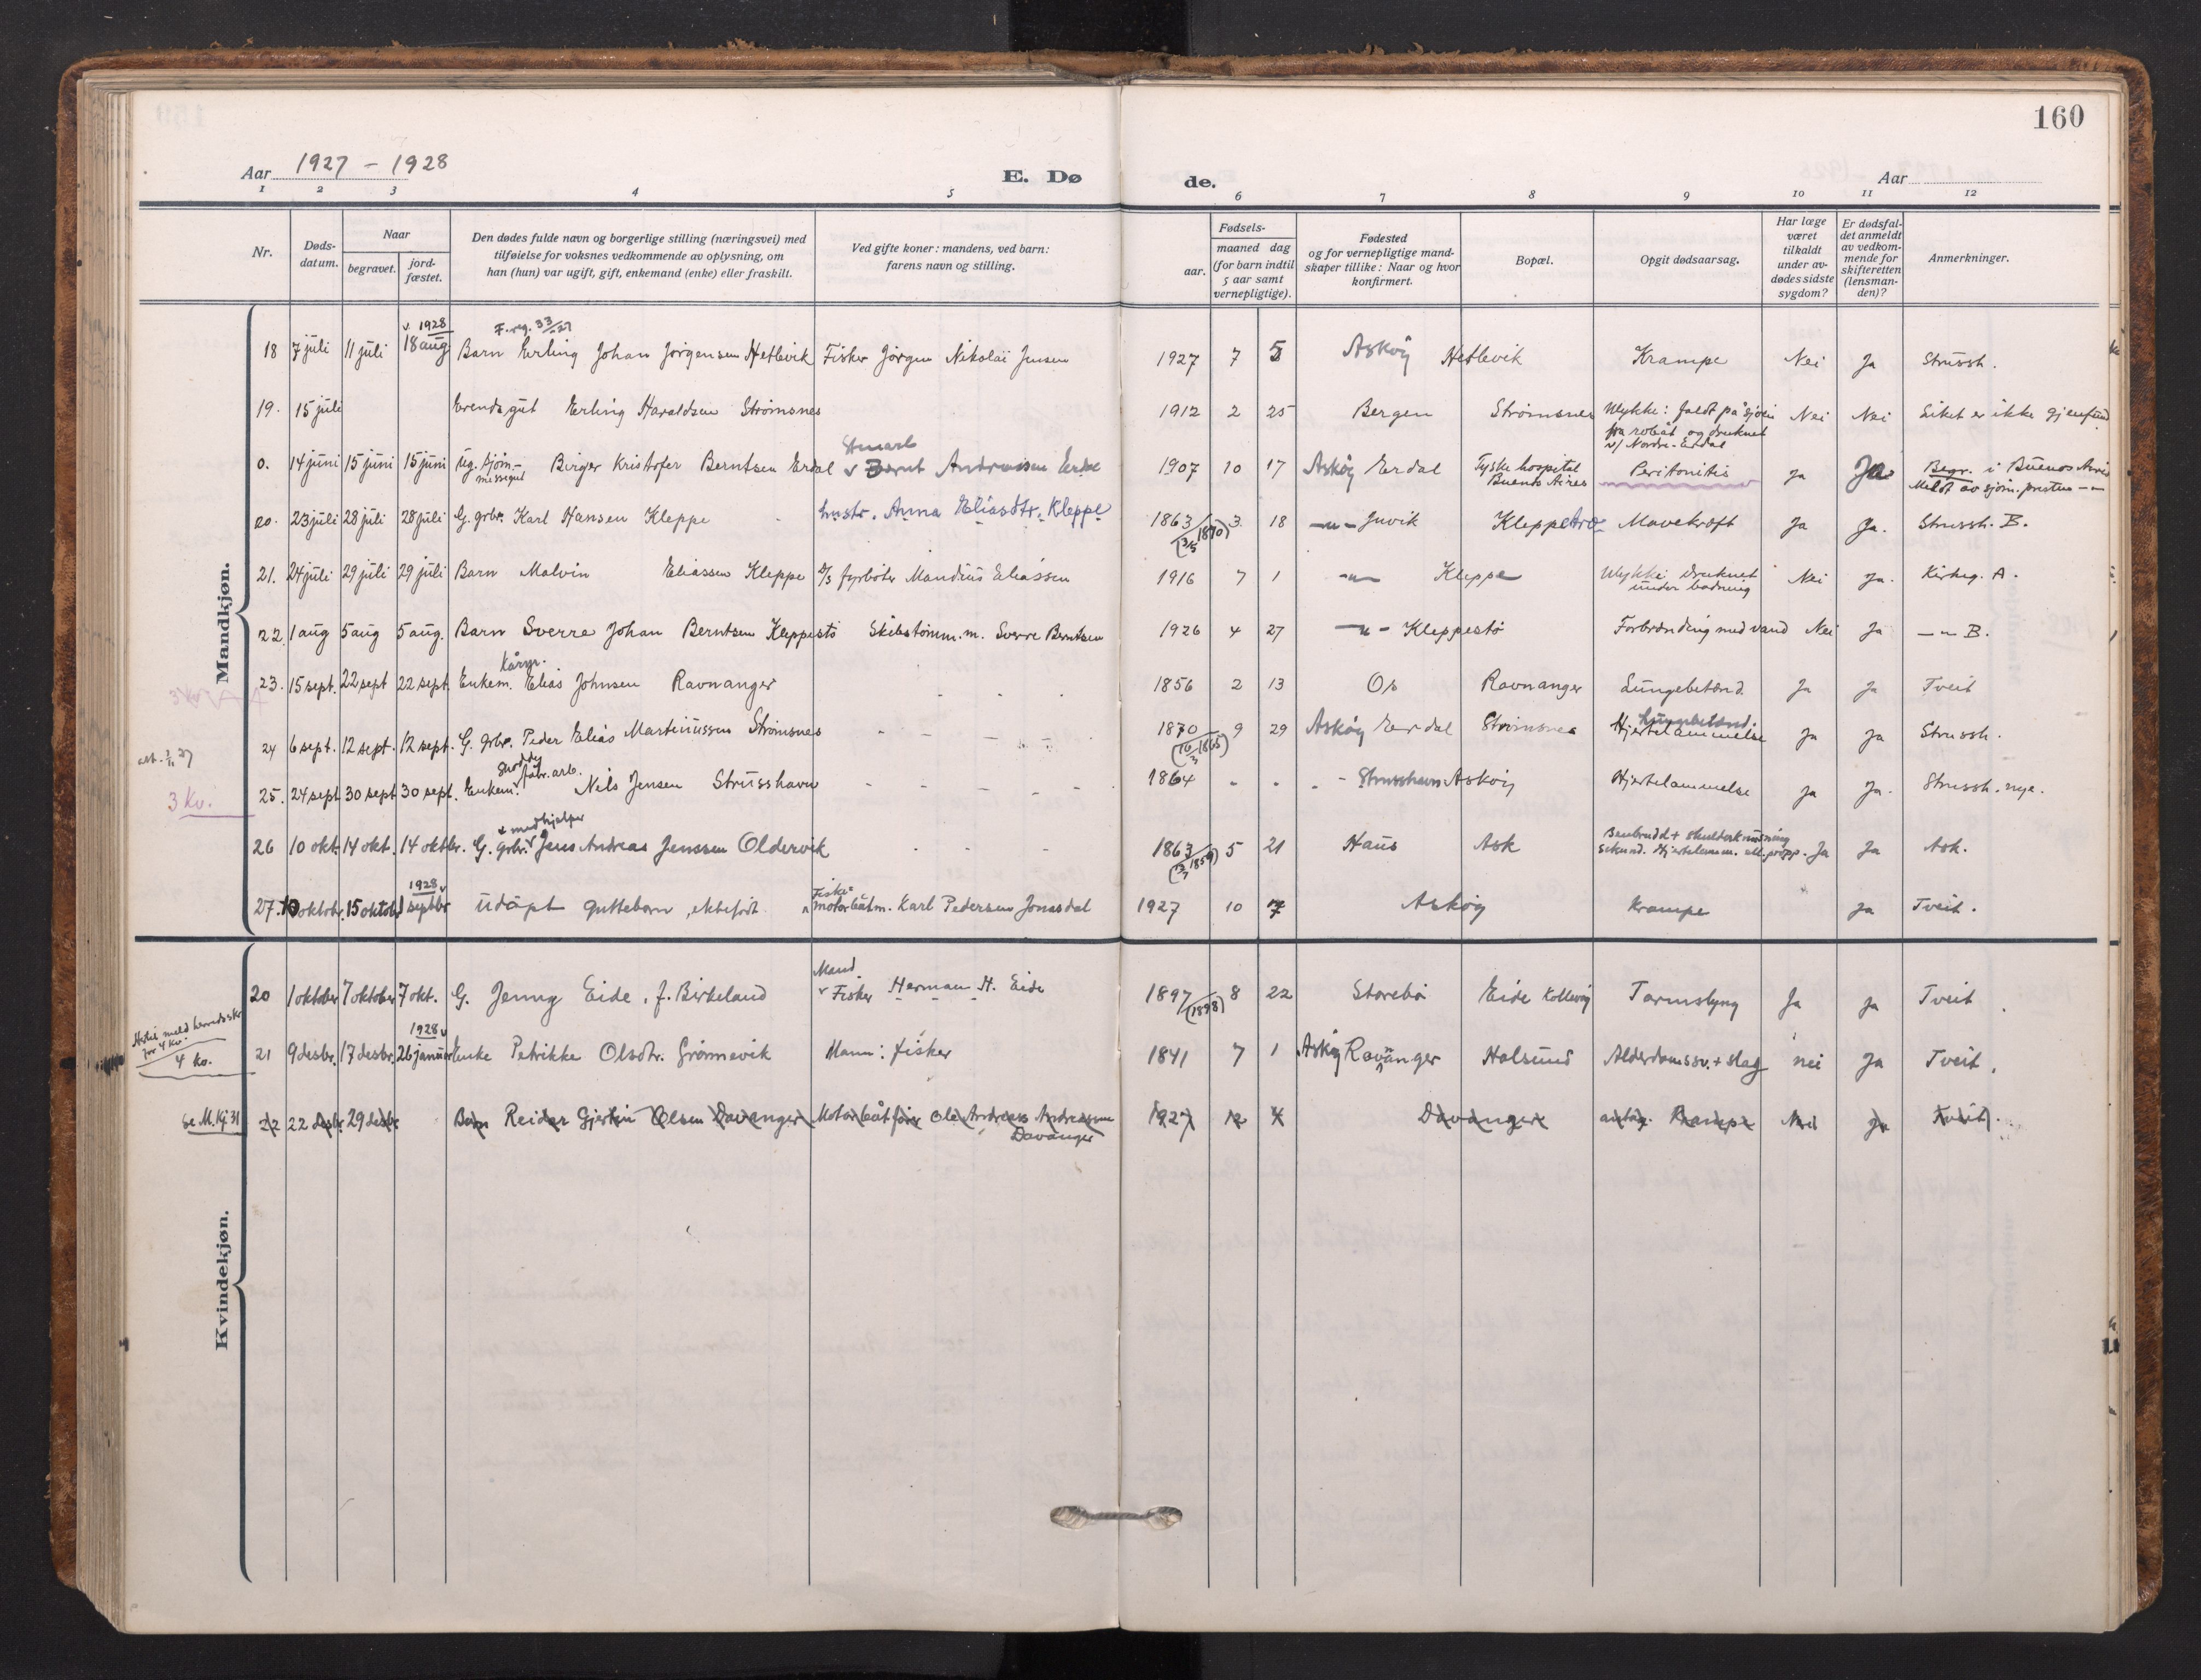 160
Aar 1927 - 1928 E. Dø de. Aar
1 2 3 4 5 6 7 8 9 10 11 12
Nr. Døds-datum. Naar begravet. jord-fæstet. Den dødes fulde navn og borgerlige stilling (næringsvei) med tilføielse for voksnes vedkommende av oplysning, om han (hun) var ugift, gift, enkemand (enke) eller fraskilt. Ved gifte koner: mandens, ved barn: farens navn og stilling. Fødsels- aar. maaned dag (for barn indtil 5 aar samt vernepligtige). Fødested og for vernepligtige mand-skaper tillike: Naar og hvor konfirmert. Bopæl. Opgit dødsaarsag. Har læge været tilkaldt under av-dødes sidste sygdom? Er dødsfal-det anmeldt av vedkom-mende for skifteretten (lensman-den)? Anmerkninger.
Mandkjøn.
v. 1928 F. reg. 33/27
18 7 juli 11 juli 18 aug Barn Erling Johan Jørgensen Hetlevik Fisker Jørgen Nikolai Jensen 1927 7 5 Askøy Hetlevik Krampe Nei Ja Strussh.
19. 15 juli Erling Haraldsen Strømsnes 1912 2 25 Bergen Strømsnes Ulykke: faldt på sjøen fra robåt og druknet v/ Nordre-Erdal Nei Nei Liket er ikke gjenfund
0. 14 juni 15 juni 15 juni ug. sjøm- Birger Kristofer Berntsen Erdal v Bernt Andreassen 1907 10 17 Askøy Erdal Tyske hospital Buenos Aires Peritonitis Ja Ja Begr. i Buenos Aires Meldt av sjøm. presten -"-
20. 23 juli 28 juli 28 juli G. grbr. Karl Hansen Kleppe hustr. Anna Eliasdtr. Kleppe 1863 (3/5 1870) 3 18 -"- Juvik Kleppe Mavekræft Ja Ja. Strussh. B.
21. 24 juli 29 juli 29 juli Barn Malvin Eliassen Kleppe D/s fyrbøter Mandius Eliassen 1916 7 1 -"- Kleppe Ulykke: druknet under badning Nei Ja. Kirkeg. A.
22. 1 aug 5 aug 5 aug. Barn Sverre Johan Berntsen Kleppestø Skibstømm.m. Sverre Berntsen 1926 4 27 -"- Kleppestø Forbrænding med vand Nei Ja -"- B.
23. 15 sept. 22 sept 22 sept. Enkem. Kårm. Elias Johnsen Ravnanger 1856 2 13 Os Ravnanger Lungebetænd. Ja Ja Tveit
24 6 sept. 12 sept. 12 sept. G. grbr. Peder Elias Martinussen Strømsnes 1870 9 29 Askøy Erdal Strømsnes Lungebetænd. Hjertelammelse Ja Ja Strussh.
3 Kv. 25. 24 sept 30 sept 30 sept. Enkem. fabr. arb. Nils Jensen Strusshavn 1864 Strusshavn Askøy Hjertelammelse Ja Ja. Strussh. nye.
26 10 okt. 14 okt. 14 oktbr. G. grbr. v medhjelper Jens Andreas Jenssen Oldervik 1863 5 21 Haus Ask Benbrudd + skulderknusning sekund. Hjertelamm. ell. propp. Ja Ja Ask.
1928 v
27. 10 oktobr. 15 oktobr 1 septbr Udøpt guttebarn, ektefødt Fiske-motorbåtm. Karl Pedersen Jonasdal 1927 10 7 Askøy Krampe Ja Tveit.
Kvindekjøn.
20 1 oktober 7 oktober 7 okt. G. Jenny Eide, f. Birkeland Mand v Fisker Herman H. Eide 1897 (1898) 8 22 Storebø Eide Kollevåg Tarmslyng Ja Ja Tveit
1928 v
for 4 kv. 4 kv. 21 9 desbr. 17 desbr. 26 januar Enke Petrikke Olsdtr. Grønnevik Mann: fisker 1841 7 1 Askøy Ravnanger Halsund Alderdomssv. + slag nei Ja Tveit.
se M. Kj 31 22 22 desbr. 29 desbr Barn Reidar Gjertin Olsen Davanger Motorbåtfører Ole Andreas Andreassen Davanger 1927 12 4 Davanger antag. Krampe Nei Ja Tveit.